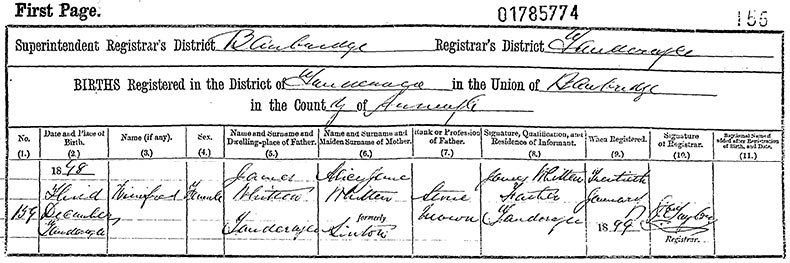 First Page. 01785774 155
Superintendent Registrar's District Banbridge Registrar's District Tanderagee
BIRTHS Registered in the District of Tanderagee in the Union of Banbridge
in the County of
No. Date and Place of Birth. Name (if any). Sex. Name and Surname and Dwelling-place of Father. Name and Surname and Maiden Surname of Mother. Rank or Profession of Father. Signature, Qualification, and Residence of Informant. When Registered. Signature of Registrar. Baptismal Name, if added after Registration of Birth, and Date.
(1.) (2.) (3.) (4.) (5.) (6.) (7.) (8.) (9.) (10.) (11.)
1898 James Alice Jane James Whitten Twentieth
Third Winifred Female Whitten Whitten Stone Father January
159 December Tanderagee formerly Tanderagee 1899
Tanderagee Sinton Registrar.